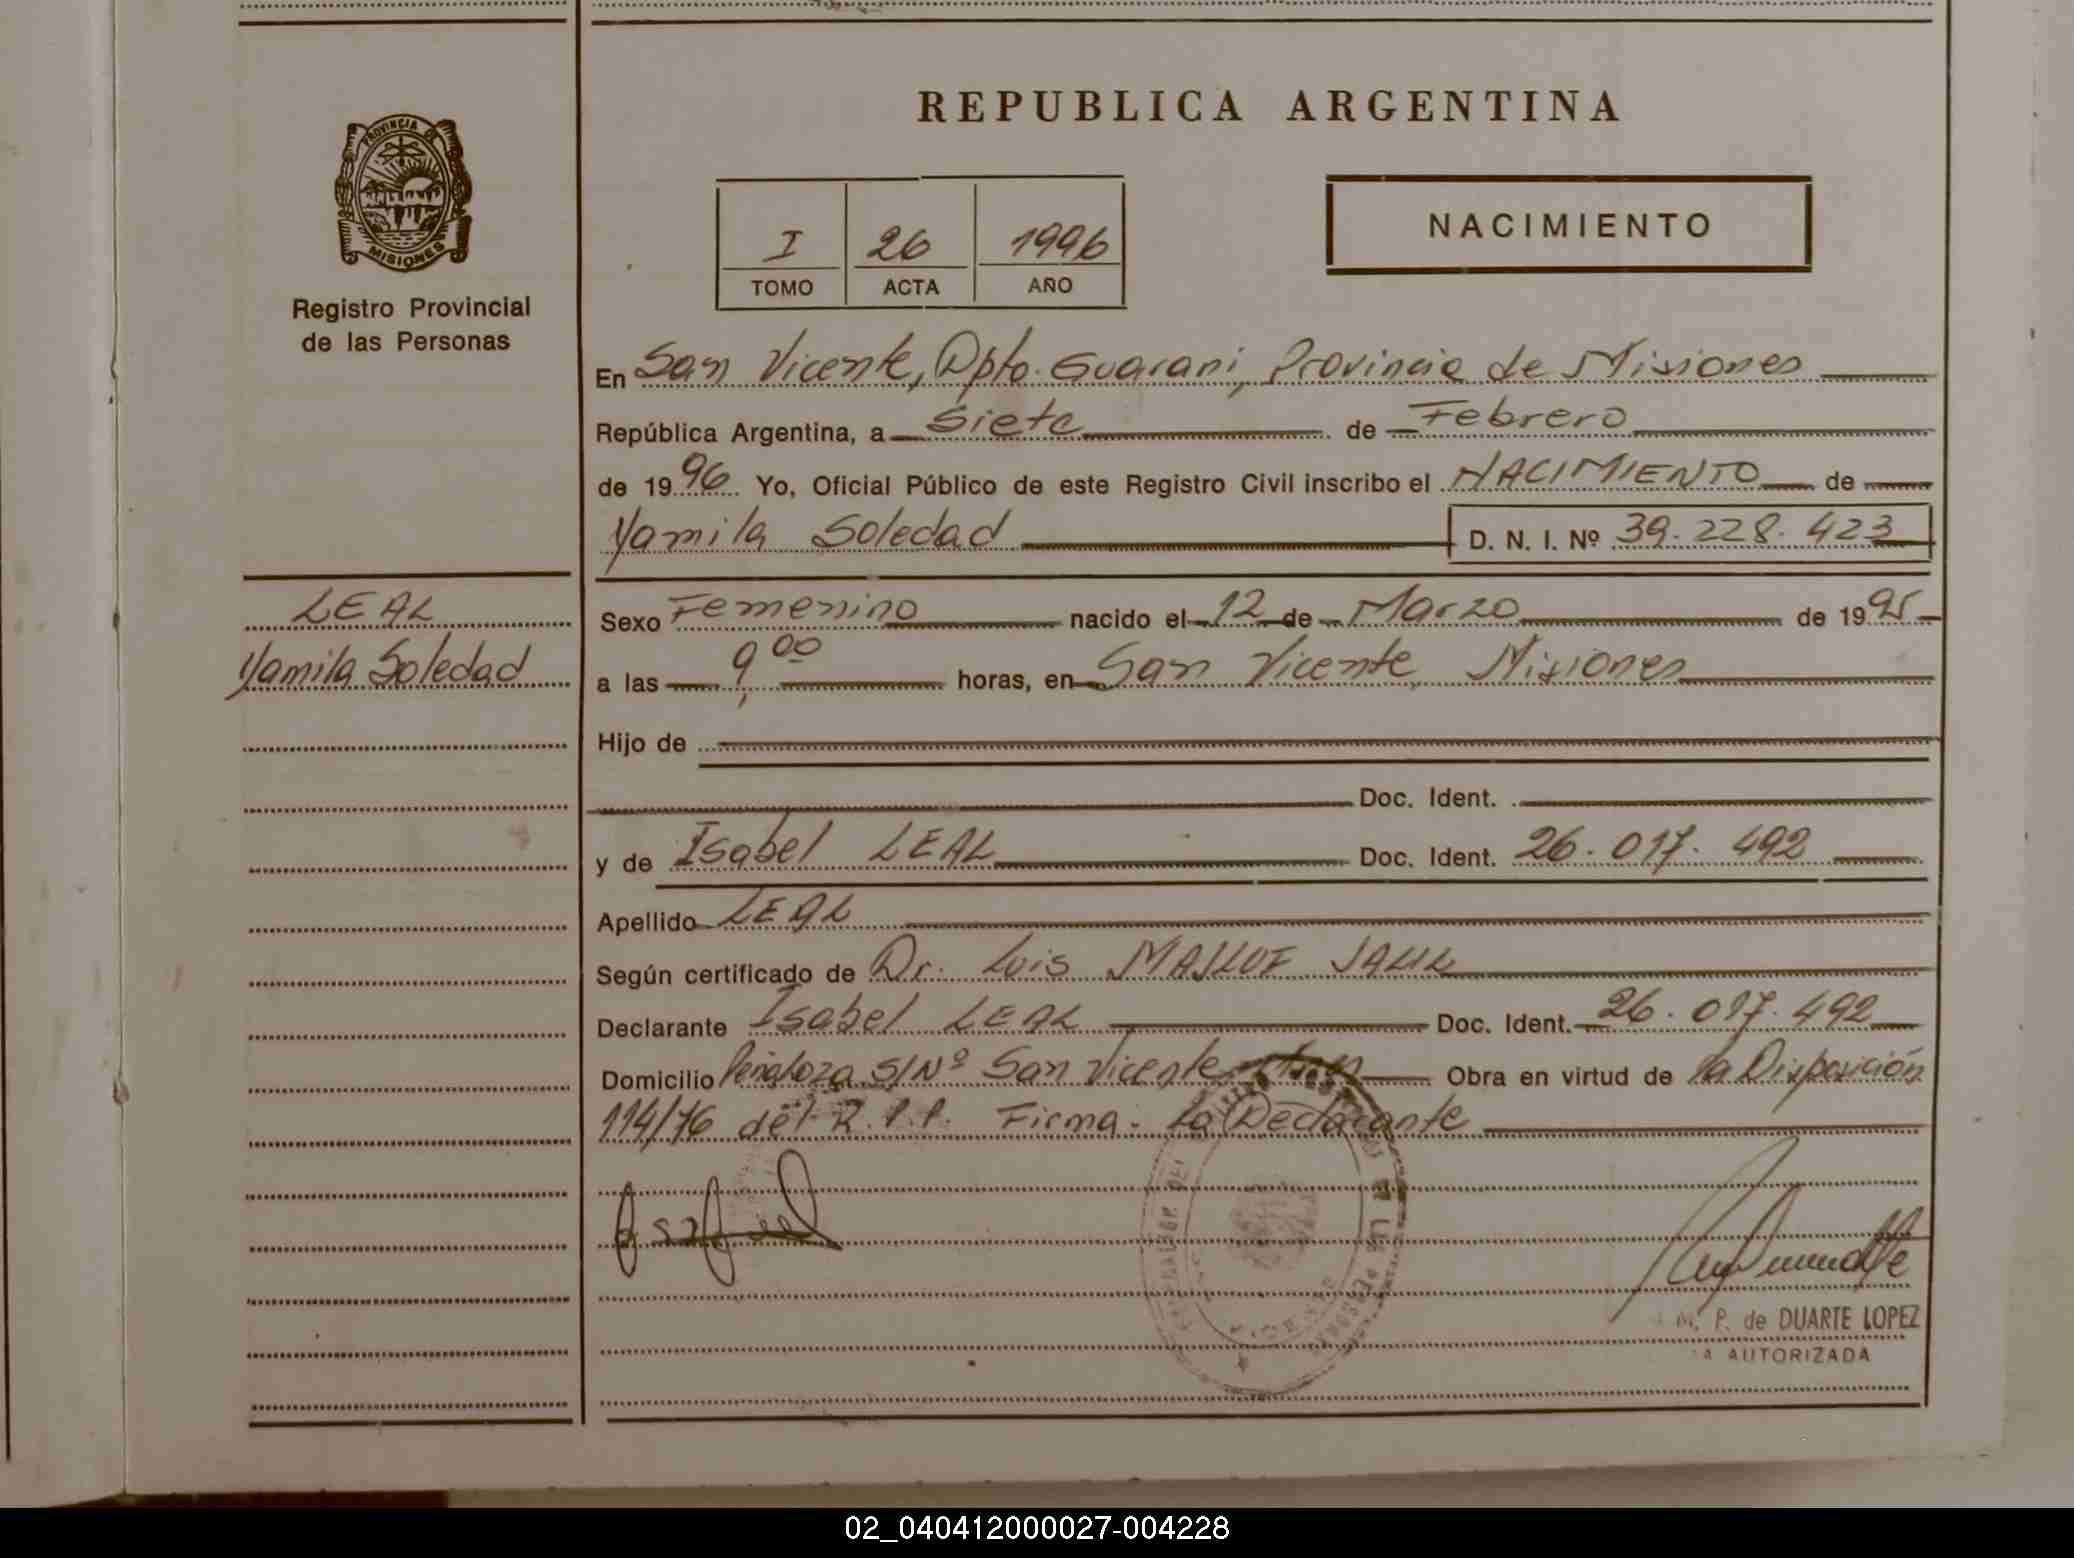 REPUBLICA ARGENTINA
PROVINCIA DE
MISIONES
Registro Provincial
de las Personas
I 26 1996
TOMO ACTA AÑO
NACIMIENTO
En San Vicente, Dpto. Guarani, Provincia de Misiones
República Argentina, a siete de Febrero
de 1996 Yo, Oficial Público de este Registro Civil inscribo el NACIMIENTO de
Yamila Soledad D. N. I. Nº 39.228.423
LEAL
Yamila Soledad
Sexo Femenino nacido el 12 de Marzo de 1995
a las 9,00 horas, en San Vicente, Misiones
Hijo de
Doc. Ident.
y de Isabel LEAL Doc. Ident. 26.017.492
Apellido LEAL
Según certificado de Dr. Luis MAJLUF JALIL
Declarante Isabel LEAL Doc. Ident. 26.017.492
Domicilio Peñaloza S/Nº San Vicente Obra en virtud de la Disposición
114/76 del R.P.P. Firma: La Declarante
M. P. de DUARTE LOPEZ
AUTORIZADA
02_040412000027-004228